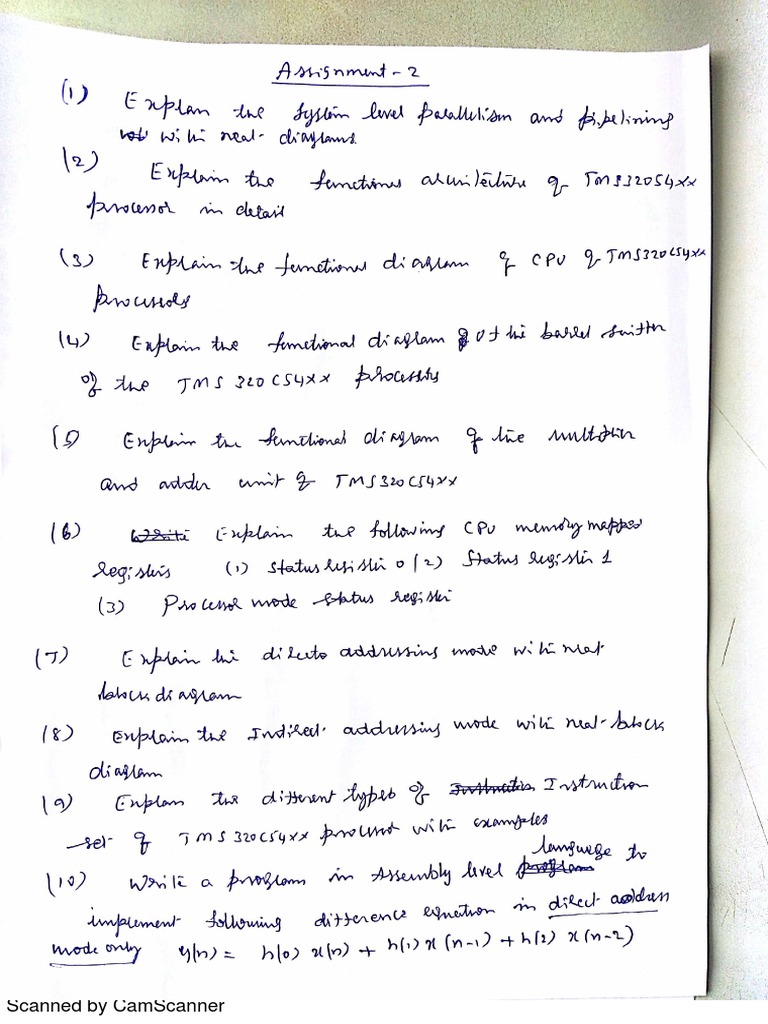 Assignment - 2
(1) Explain the System level parallelism and pipelining
with neat diagrams.
(2) Explain the functional architecture of TMS320S4xx
processor in detail
(3) Explain the functional diagram of CPU of TMS320C54xx
processors
(4) Explain the functional diagram of the barrel shifter
of the TMS 320C54xx processors
(5) Explain the functional diagram of the multiplier
and adder unit of TMS320C54xx
(6) Write Explain the following CPU memory mapped
registers (1) Status register 0 (2) Status register 1
(3) Processor mode status register
(7) Explain the direct addressing mode with neat
block diagram
(8) Explain the Indirect addressing mode with neat block
diagram
(9) Explain the different types of Instruction
set of TMS320C54xx processor with examples
language
(10) Write a program in Assembly level program to
implement following difference equation in direct address
mode only y(n) = h(0) x(n) + h(1) x(n-1) + h(2) x(n-2)
Scanned by CamScanner